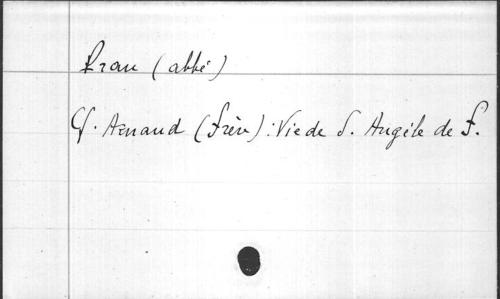 (abbé)
Cf. Arnaud (Frère) : Vie de S. Angèle de F.